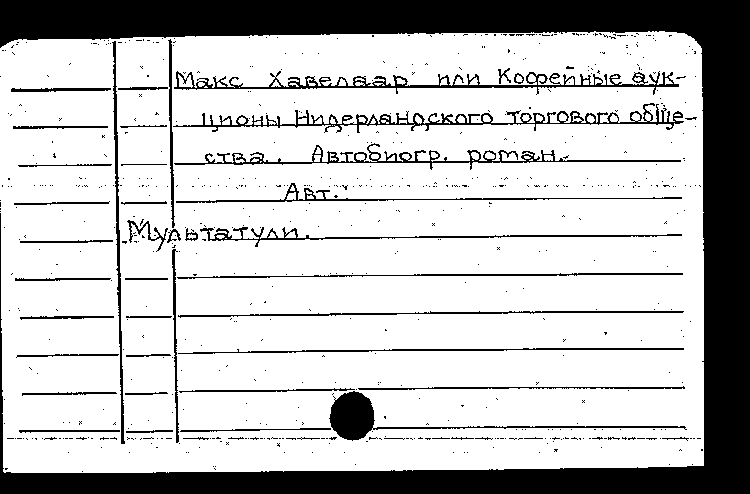 Макс Хавелаар или Кофейные аук-
ционы Нидерландского торгового обще-
ства. Автобиогр. роман.
Авт.:
Мультатули.